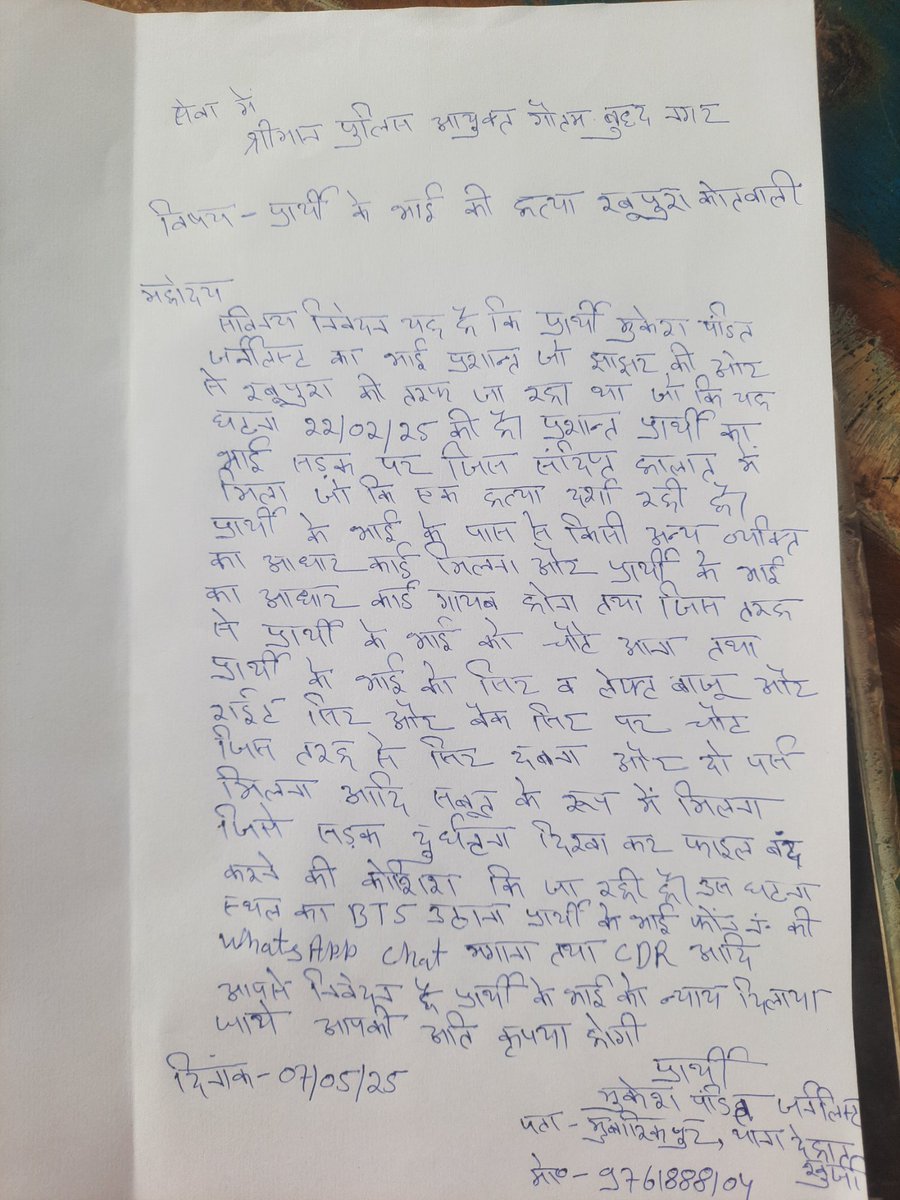 सेवा में
श्रीमान पुलिस आयुक्त गौतम बुद्ध नगर
विषय - प्रार्थी के भाई की हत्या रबूपुरा कोतवाली
महोदय
सविनय निवेदन यह है कि प्रार्थी मुकेश पंडित
जर्नलिस्ट का भाई प्रशान्त जो झाझर की ओर
से रबूपुरा की तरफ जा रहा था जो कि यह
घटना 22/02/25 की है। प्रशान्त प्रार्थी का
भाई सड़क पर जिस संदिग्ध हालात में
मिला जो कि एक हत्या दर्शा रही है।
प्रार्थी के भाई के पास से किसी अन्य व्यक्ति
का आधार कार्ड मिलना और प्रार्थी के भाई
का आधार कार्ड गायब होना तथा जिस तरह
से प्रार्थी के भाई को चोटे आना तथा
प्रार्थी के भाई को सिर व लेफ्ट बाजू और
राईट सिर और बैक सिर पर चोट
जिस तरह से सिर दबना और दो पर्स
मिलना आदि सबूत के रूप में मिलना
जिसे सड़क दुर्घटना दिखा कर फाइल बंद
करने की कोशिश कि जा रही है। उस घटना
स्थल का BTS उठाना प्रार्थी के भाई फोन नं. की
WhatsApp chat मगाना तथा CDR आदि
आपसे निवेदन है प्रार्थी के भाई को न्याय दिलाया
जाये आपकी अति कृपया होगी
प्रार्थी
दिनांक - 07/05/25
मुकेश पंडित जर्नलिस्ट
पता - मुबारिकपुर, थाना देहात
खुर्जा
मो० - 9761888104